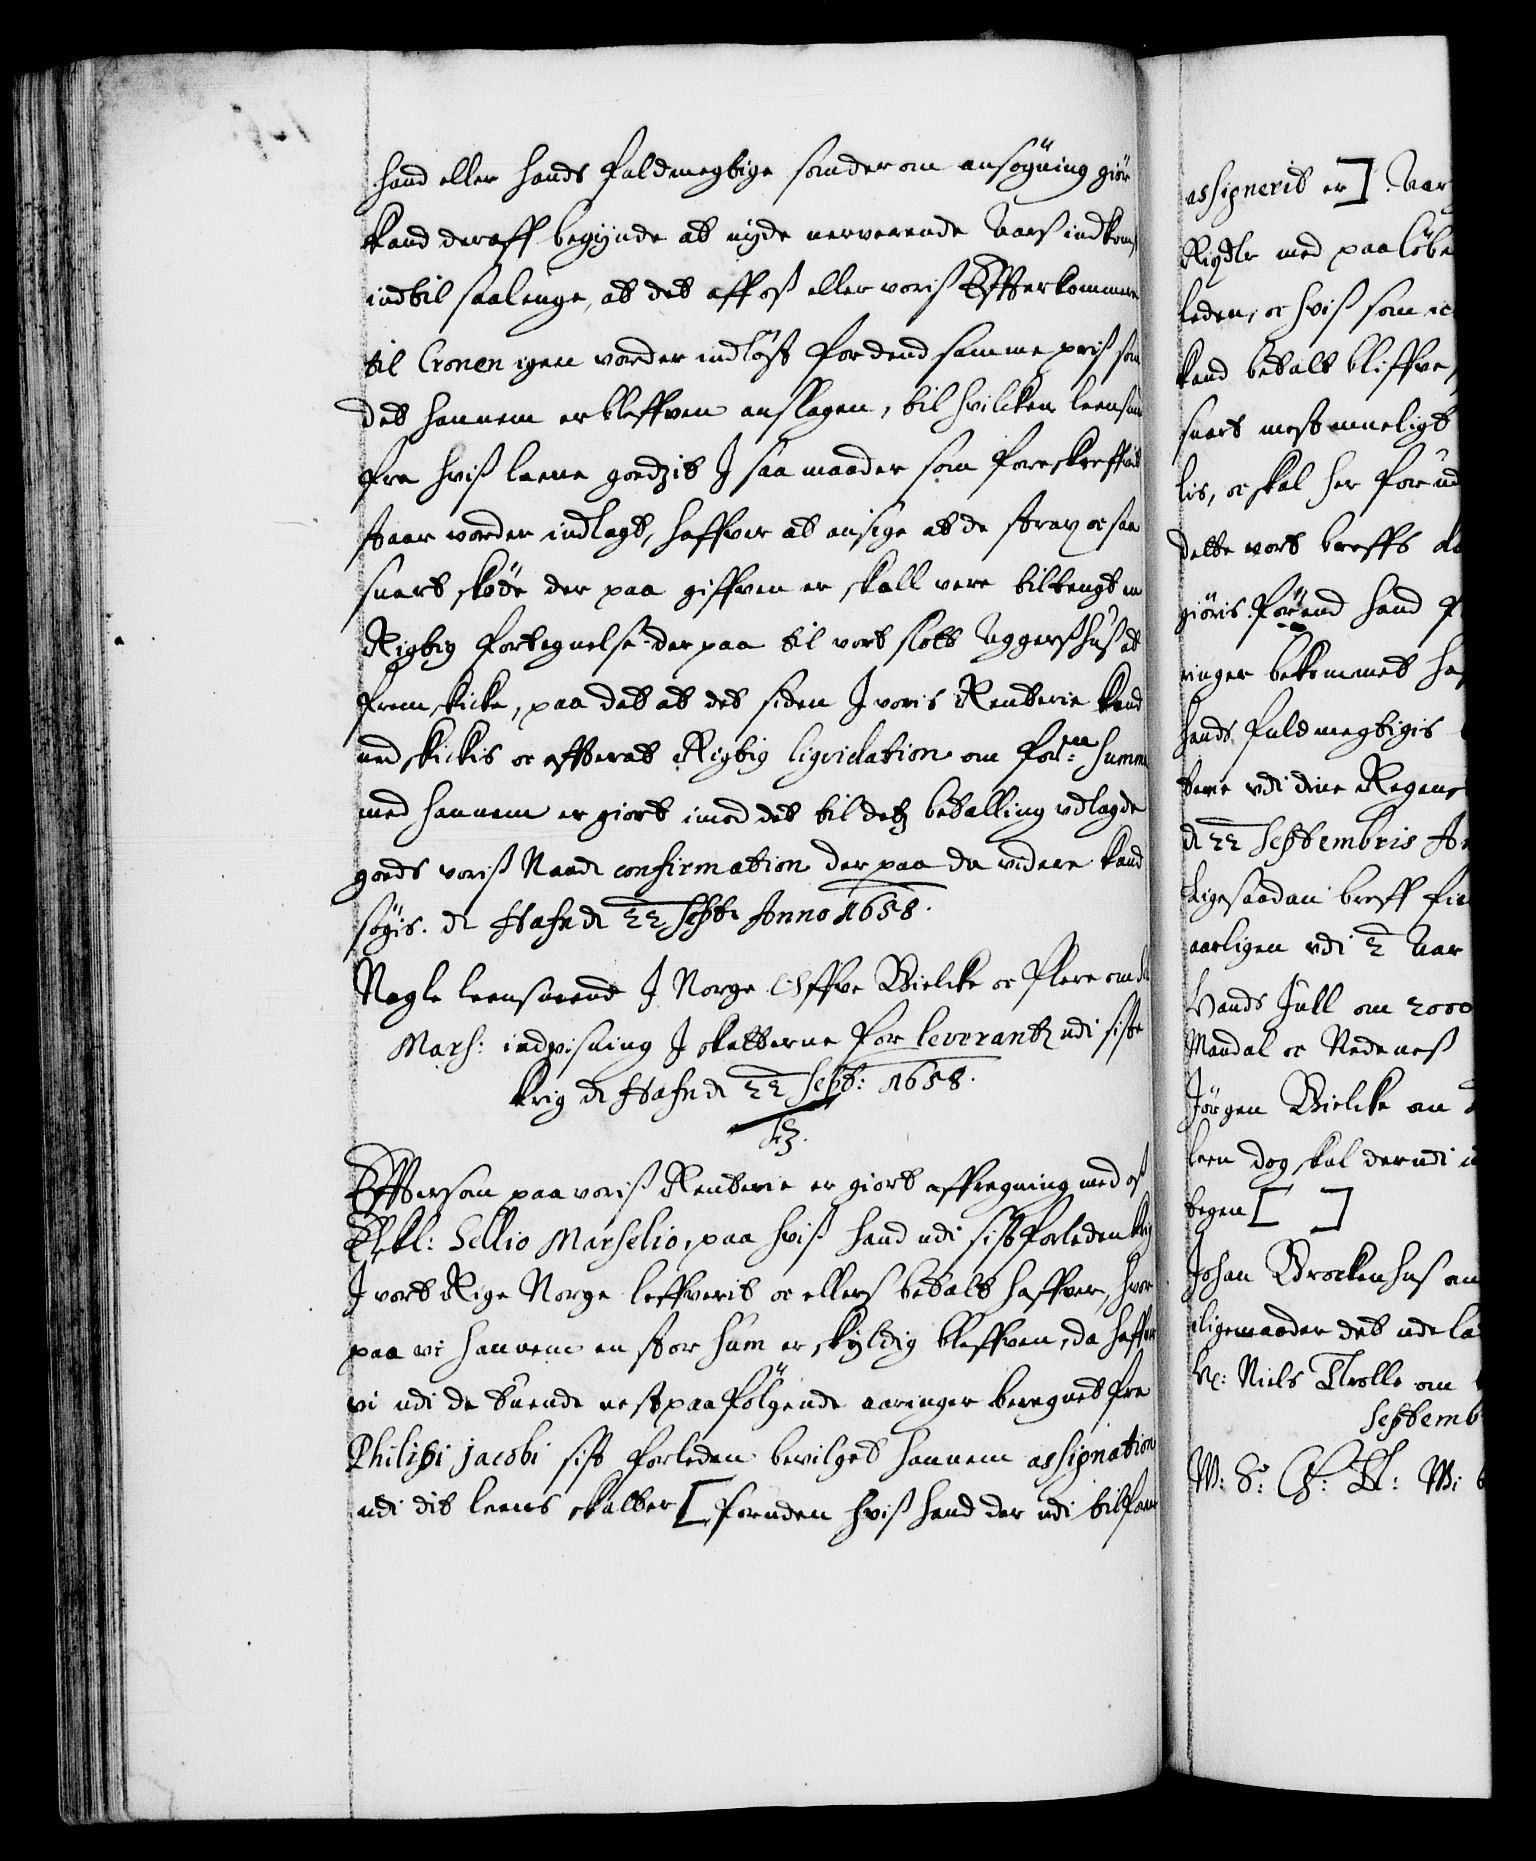 hand eller hands fuldmegtige som der om ansøgning giør
kand deraff begynde at nyde nerverende Aars indkomst
indtil saalenge, at det aff oß eller voriß Effterkommere
til Cronen igen vorder indløst for dend samme priß som
det hannem er bleffven anslagen, til hvilcken leensmænd
fra hviß leene godzit J saa maader som foreskreffvit
staar vorder indlagt, haffver at ansige at de strax oc saa
snart skøde der paa giffven er skall vere tiltengt en
Rigtig fortegnelse der paa til vort slott Aggerßhuß at
fremskicke, paa det at det siden J voris Renterie kand
nedskickis oc effterat Rigtig liqvidation om for.ne summa
med hannem er giort imod det til detz betalling vdlagde
gods voriß Naadi confirmation der paa da videre kand
søgis. d Hafn d 22 Septb. Anno 1658.
Nogle leensmend J Norge Offve Bielcke oc flere om Sel
Mars: indvisning J skatterne for leverantz udi siste
krig d Hafn d 22 Sept: 1658.
F3.
Effttersom paa voriß Renterie er giort affregning med oß
Elskl: Sellio Marselio, paa hviß hand udi sist forleden krig
J vort Rige Norge leffverit oc ellers betalt haffver, hvor
paa vi hannem en stor sum er skyldig bleffven, da haffver
vi udi de tuende nestpaafølgende aaringer beregnet fra
Philipi Jacobi sist forleden bevilget hannem assignation
udi dit leens skatter [foruden hviß hand der udi tilforn
assignerit er] Aar
Rigdlr med paaløbe
leden, oc hviß som ic
kand betalt bliffve
snart mest mueligt
lis, oc skal her for ud
dette vort breffs da
giøris. førend hand
ringer bekommet haf
hands fuldmegtigis
terie vdi dine Regens
d 22 Septembris An
Ligesaadan breff fi
aarligen vdi 2 Aar
Vands Jull om 2000
Mandal oc Nedeneß
Jørgen Bielcke om
leen dog skal der udi
tegen [ ]
Johan Brockenhus om
iligemaader det ude la
Hr: Niels Trolle om
Septemb
W: S: G: T: W: